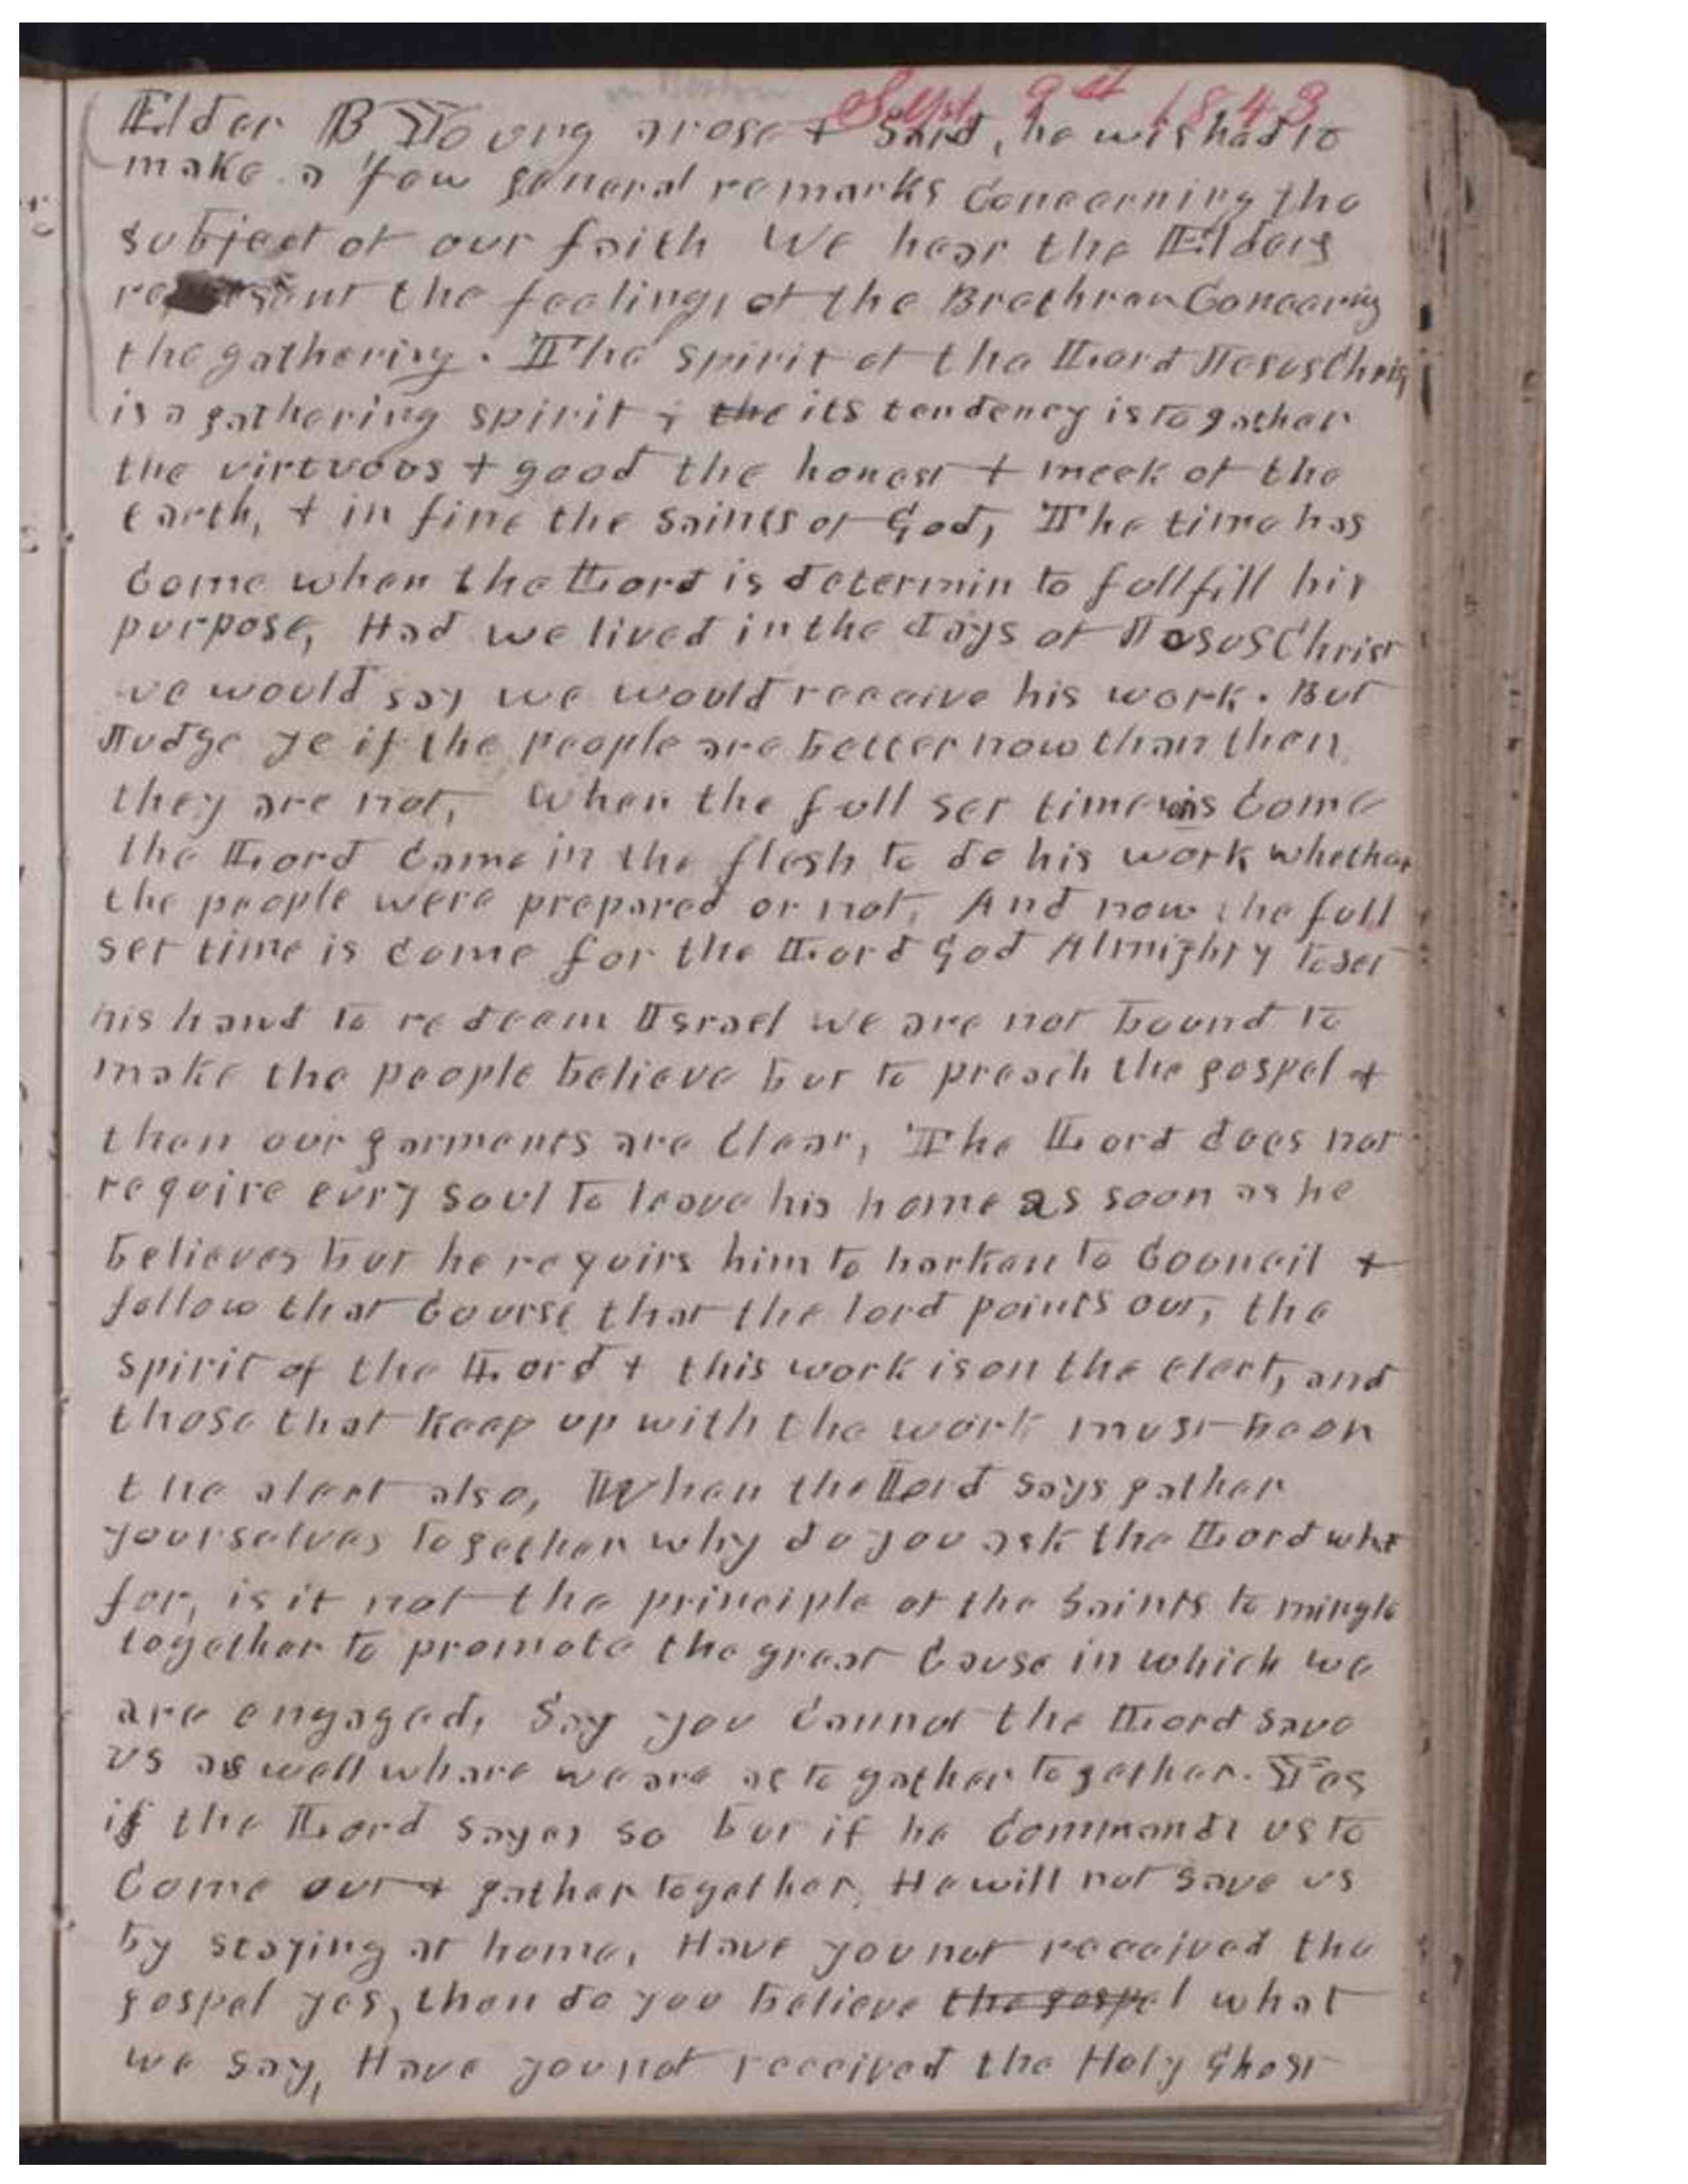 in Boston
Sept 9th 1843
Elder B Young arose + Said, he wished to
make a few general remarks Concerning the
subject of our faith We hear the Elders
represent the feelings of the Brethren Concering
the gathering. The spirit of the Lord Jesus Chris
is a gathering spirit ; the its tendency is to gather
the virtuous + good the honest + meek of the
earth, + in fine the saints of God, The time has
Come when the Lord is determin to fullfill his
purpose, Had we lived in the days of Jesus Christ
we would say we would receive his work. But
Judge ye if the people are better now than then
they are not, When the full set time is Come
the Lord Came in the flesh to do his work whether
the people were prepared or not. And now the full
set time is come for the Lord God Almighty to set
his hand to redeem Israel we are not bound to
make the people believe but to preach the gospel +
then our garments are Clear, The Lord does not
require evry soul to leave his home as soon as he
believes but he requirs him to harken to Council +
follow that Course that the lord points out, the
spirit of the Lord + this work is on the elert, and
those that keep up with the work must be on
the alert also, When the Lord says gather
yourselves together why do you ask the Lord what
for, is it not the principle of the Saints to mingle
together to promote the great Cause in which we
are engaged, Say you Cannot the Lord save
us as well whare we are as to gather together. Yes
if the Lord sayes so but if he Commands us to
Come out + gather together, He will not save us
by staying at home, Have you not received the
gospel yes, then do you believe the gospel what
we say, Have you not received the Holy Ghost